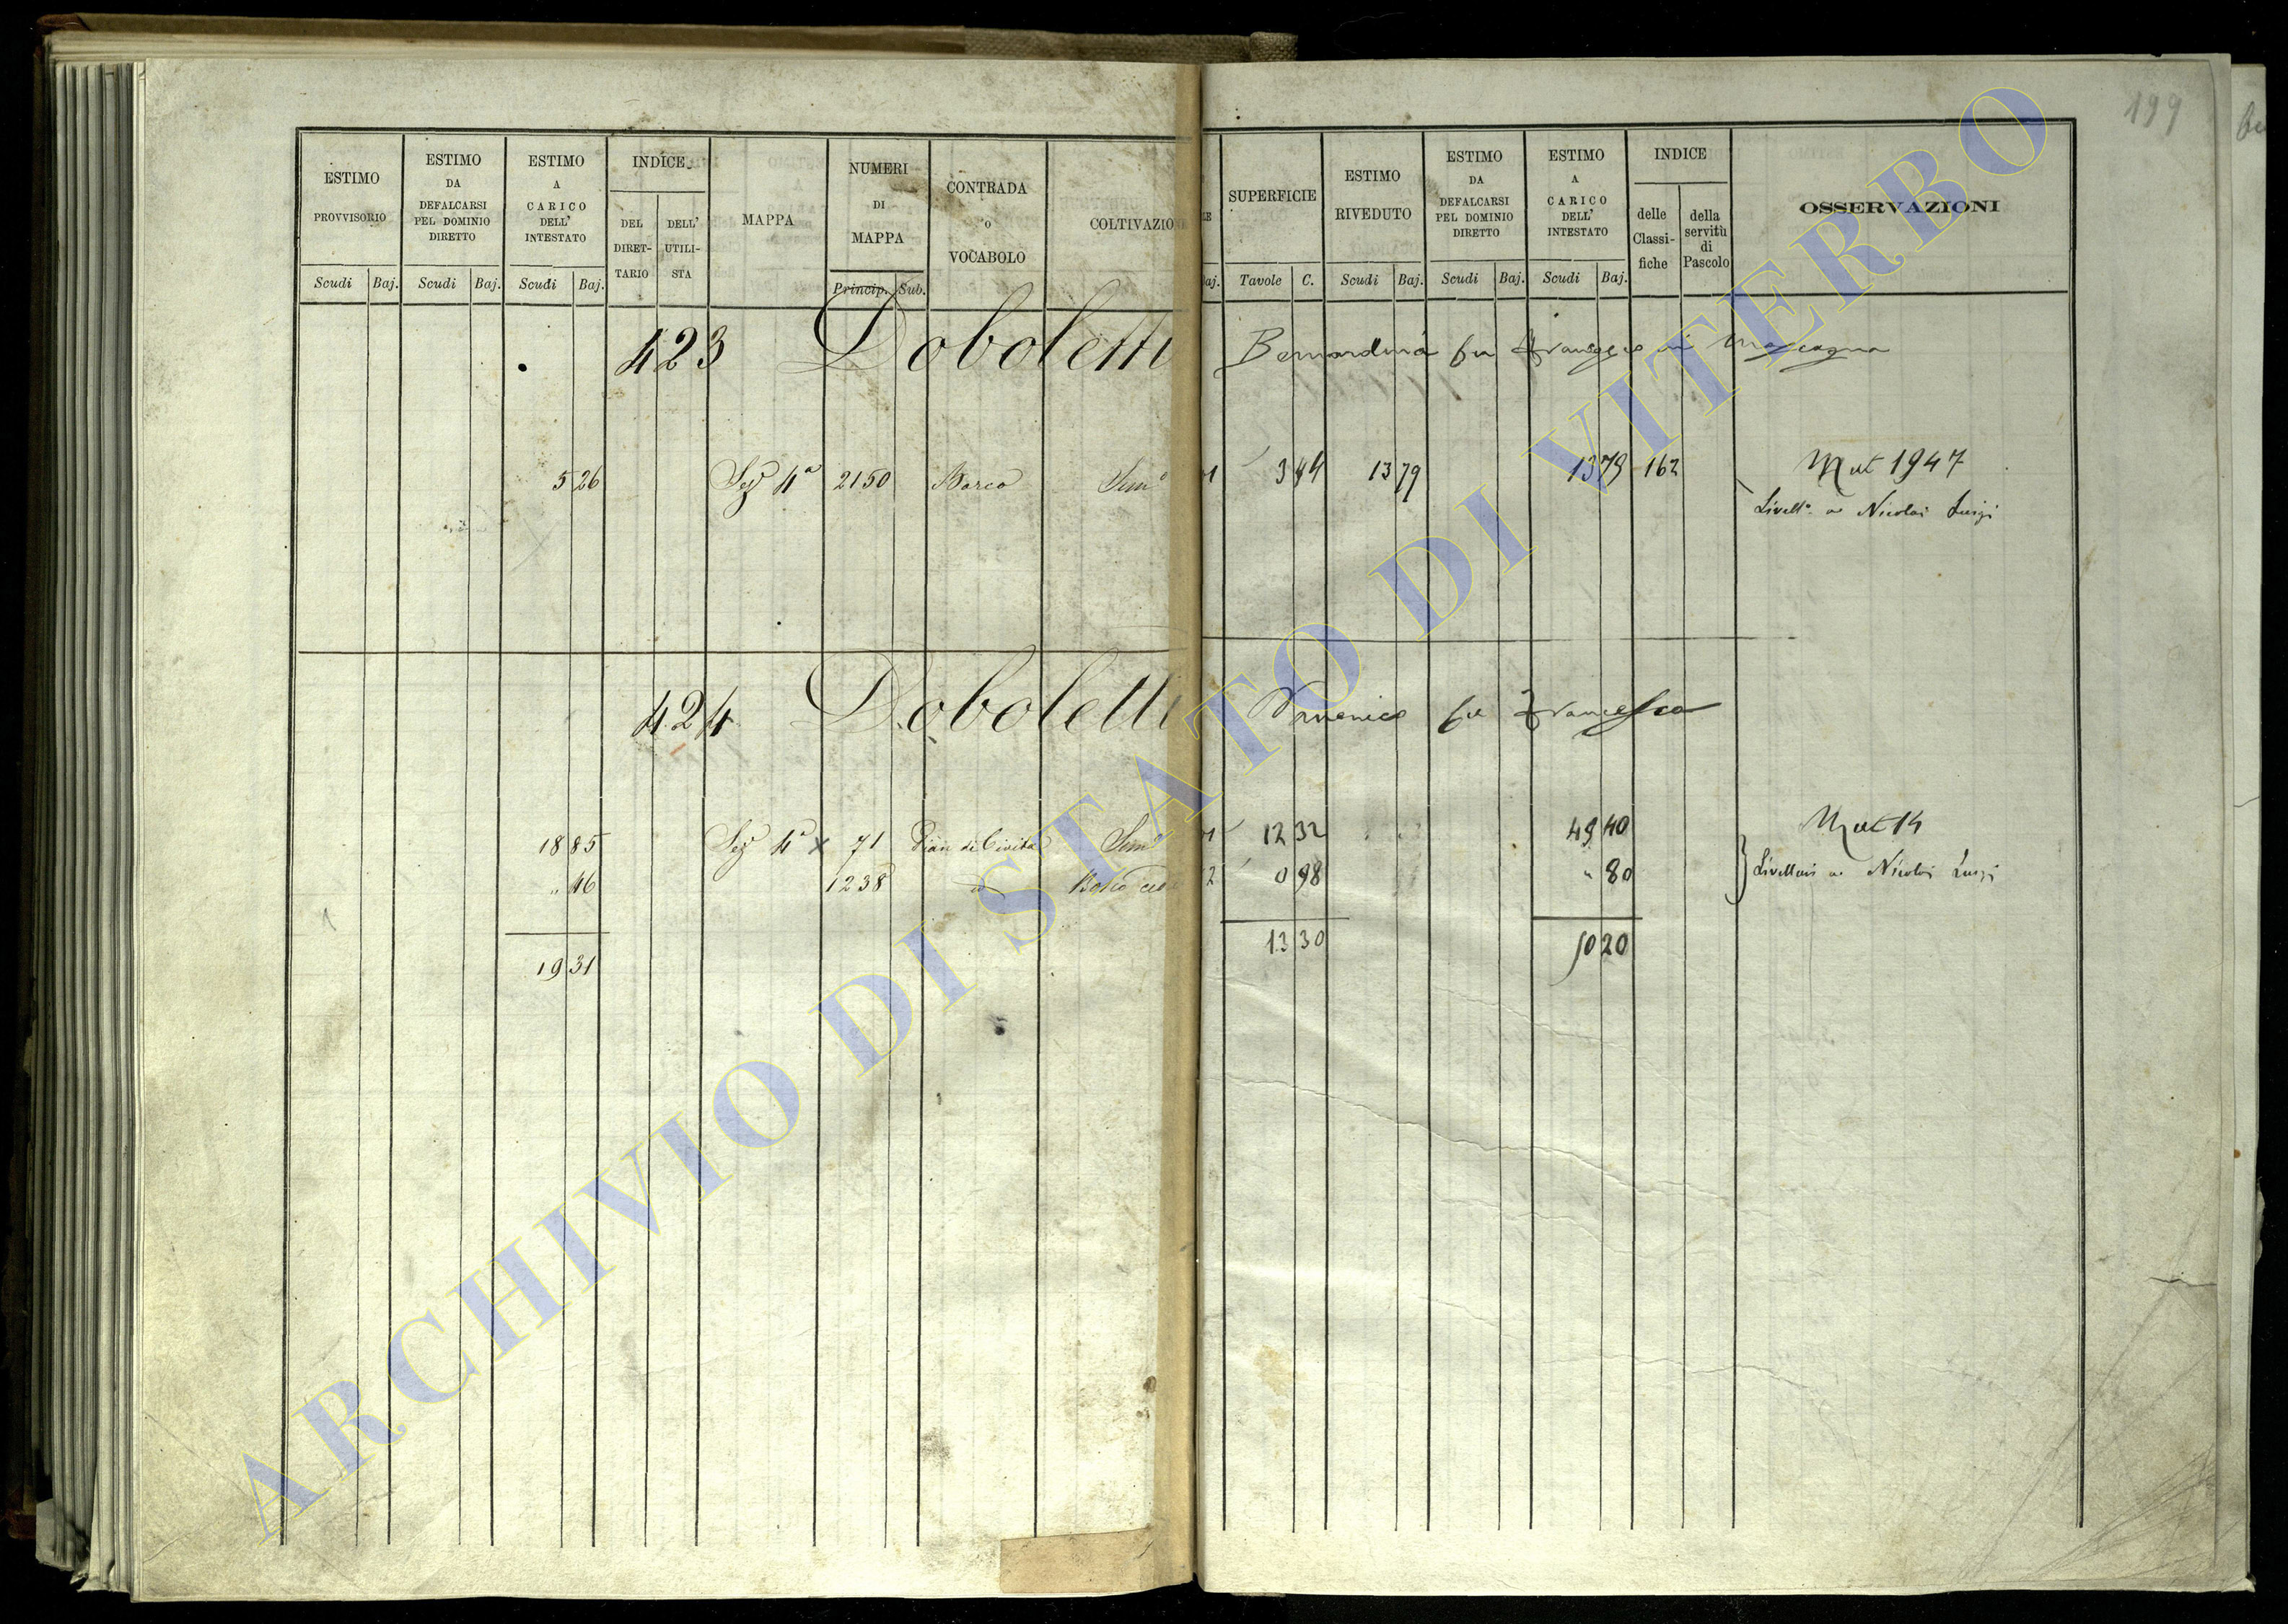 199
ESTIMO PROVVISORIO
ESTIMO DA DEFALCARSI PEL DOMINIO DIRETTO
ESTIMO A CARICO DELL' INTESTATO
INDICE
DEL DIRETTARIO
DELL' UTILISTA
MAPPA
NUMERI DI MAPPA
CONTRADA o VOCABOLO
COLTIVAZION
SUPERFICIE
ESTIMO RIVEDUTO
ESTIMO DA DEFALCARSI PEL DOMINIO DIRETTO
ESTIMO A CARICO DELL' INTESTATO
INDICE
delle Classifiche
della servitù di Pascolo
OSSERVAZIONI
Scudi Baj. Scudi Baj. Scudi Baj. Princip. Sub. aj. Tavole C. Scudi Baj. Scudi Baj. Scudi Baj.
423 Doboletti Bernardina fu Francesco in
5 26 Sez 4a 2150 Barco Semo 1 3 44 13 79 13 79 162 Mut 1947
Livello a Nicolai Luigi
424 Doboletti Domenico fu Francesco
18 85 Sez 4a x 71 Pian di Civita Semo 1 12 32 49 40 Mut 14
" 46 1238 Bosco ced 2 0 98 " 80 Livellari a Nicolai Luigi
19 31 13 30 50 20
ARCHIVIO DI STATO DI VITERBO